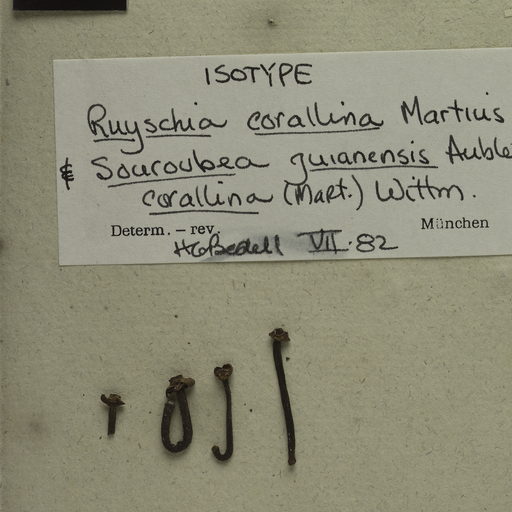 ISOTYPE
Ruyschia corallina Martius
& Souroubea guianensis Auble
corallina (Mart.) Wittm.
Determ. – rev.
München
HGBedell VII. 82